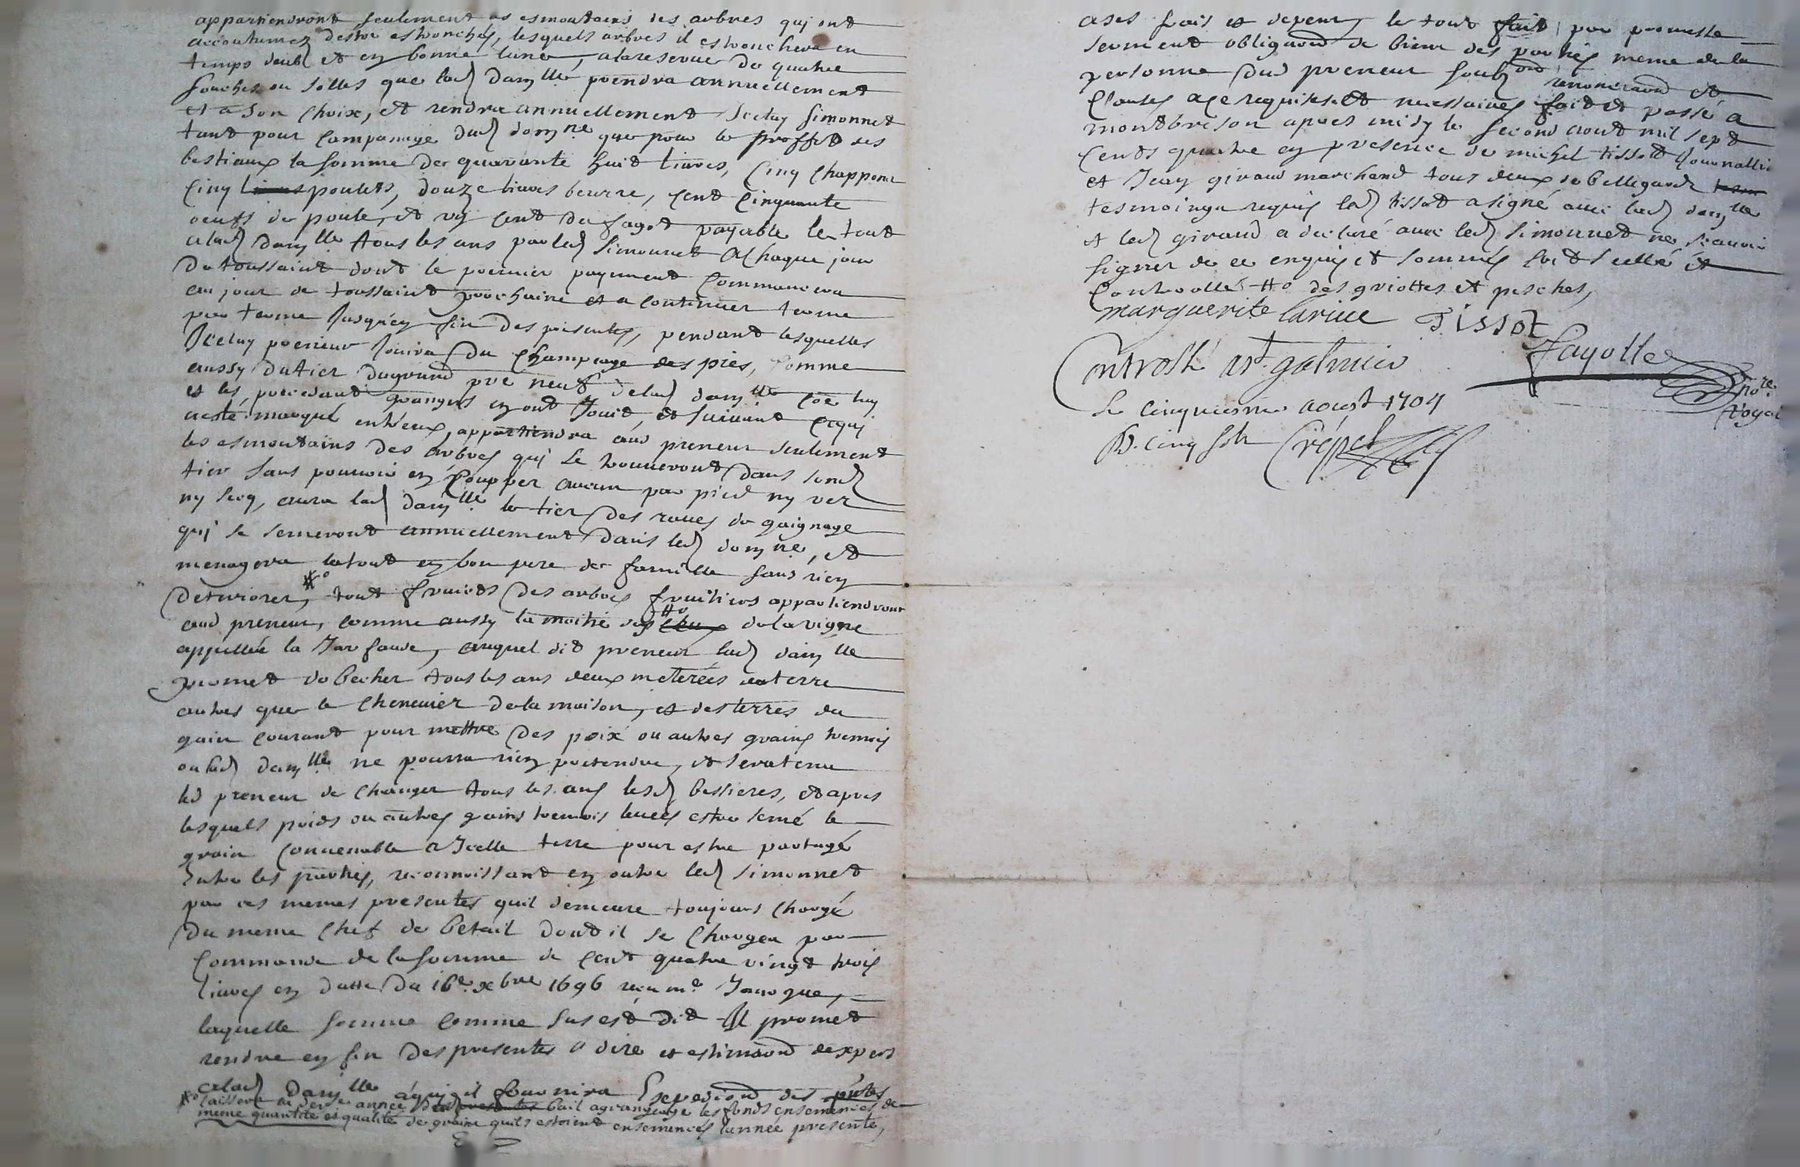 appartiendront seulement es esmoutains des arbres qui ont
accoutumez destre estronchés, lesquels arbres il estronchera en
temps deub et en bonne lune, a la reserve de quatre
souches ou solles que lad damlle prendra annuellement
et a son choix, et rendra annuellement Iceluy simonnet
tant pour lampanage dud domne que pour le proffit des
bestiaux la somme de quarante huit livres, cinq chappons
cinq poulets, douze livres beurre, cent cinquante
oeufs de poule, et un cent de fagot payable le tout
a lad damlle tous les ans par led simonnet a chaque jour
de toussaint dont le premier payement commancera
au jour de toussaint prochaine et a continuer terme
par terme jusques en fin des presentes, pendant lesquelles
Iceluy preneur jouira du champeage des pres, comme
aussy du tier du grand pré neuf de lad damlle coe luy
et les precedants grangers en ont jouit, et suivant ce qui
a esté marqué entreux, appartiendra aud preneur seulement
les esmoutains des arbres qui se trouveront dans led
tier sans pouvoir en coupper aucun par pied ny ver
ny secq, aura lad damlle le tier des raves de gaignage
qui se semeront annuellement dans led domne, et
menagera le tout en bon pere de famille sans rien
deteriorer, tout fruicts des arbres fruitiers appartiendront
aud preneur, comme aussy la moitié des de la vigne
appellée la , auquel dit preneur lad damlle
promet de becher tous les ans deux meterées de terre
autres que le chenevier de la maison, et des terres du
gain courant pour mettre des poix ou autres grains tremois
ou lad damlle ne pourra rien pretendre, et sera tenu
led preneur de changer tous les ans lesd bessieres, et apres
lesquels poids ou autres grains tremois levés estre semé le
grain convenable a Icelle terre pour estre partagé
entre les parties, reconnoissant en outre led simonnet
par ces memes presentes quil demeure toujours chargé
du meme chef de betail dont il se chargea par
commande de la somme de cent quatre vingt trois
livres en datte du 16e xbre 1696 receu me ,
laquelle somme comme sus est dit Il promet
rendre en fin des presentes a dire et estimaon dexpers
a lad damlle a qui il fournira expedition des pntes
laissera la derre année du bail a grangeage les fonds ensemencés de
meme quantité et qualité de graine quils estoient ensemencés lannée presente,
a ses frais et depens, le tout par promesse
serment obligaon de biens des parties meme de la
personne dud preneur renonciaon et
clauses a ce requises et necessaires fait et passé a
montbrison apres midy le second aout mil sept
cents quatre en presence de michel tissot journallier
et Jean giraud marchand tous deux de bellegarde
tesmoings requis led tissot a signé avec lad damlle
et led giraud a declaré avec led simonnet ne scavoir
signer de ce enquis et sommés soit scellé et
controllé tto des griottes et pesches,
marguerite larive tissot
fayolle
nore royal
Controllé a st galmier
le cinquiesme aoust 1704
R. cinq sols Crépet